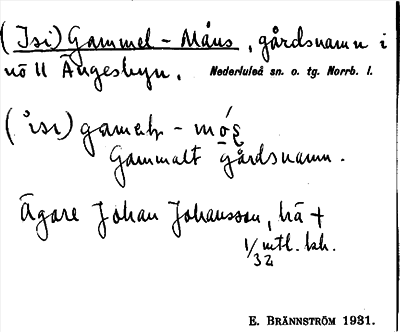 (Isi) Gammel - Måns, gårdsnamn i
nö 11 Ängesbyn. Nederluleå sn. o. tg. Norrb. l.
(ìsi) gamel - mós
Gammalt gårdsnamn.
Ägare Johan Johansson, bä +
1/32 mtl. kh.
E. BRÄNNSTRÖM 1931.